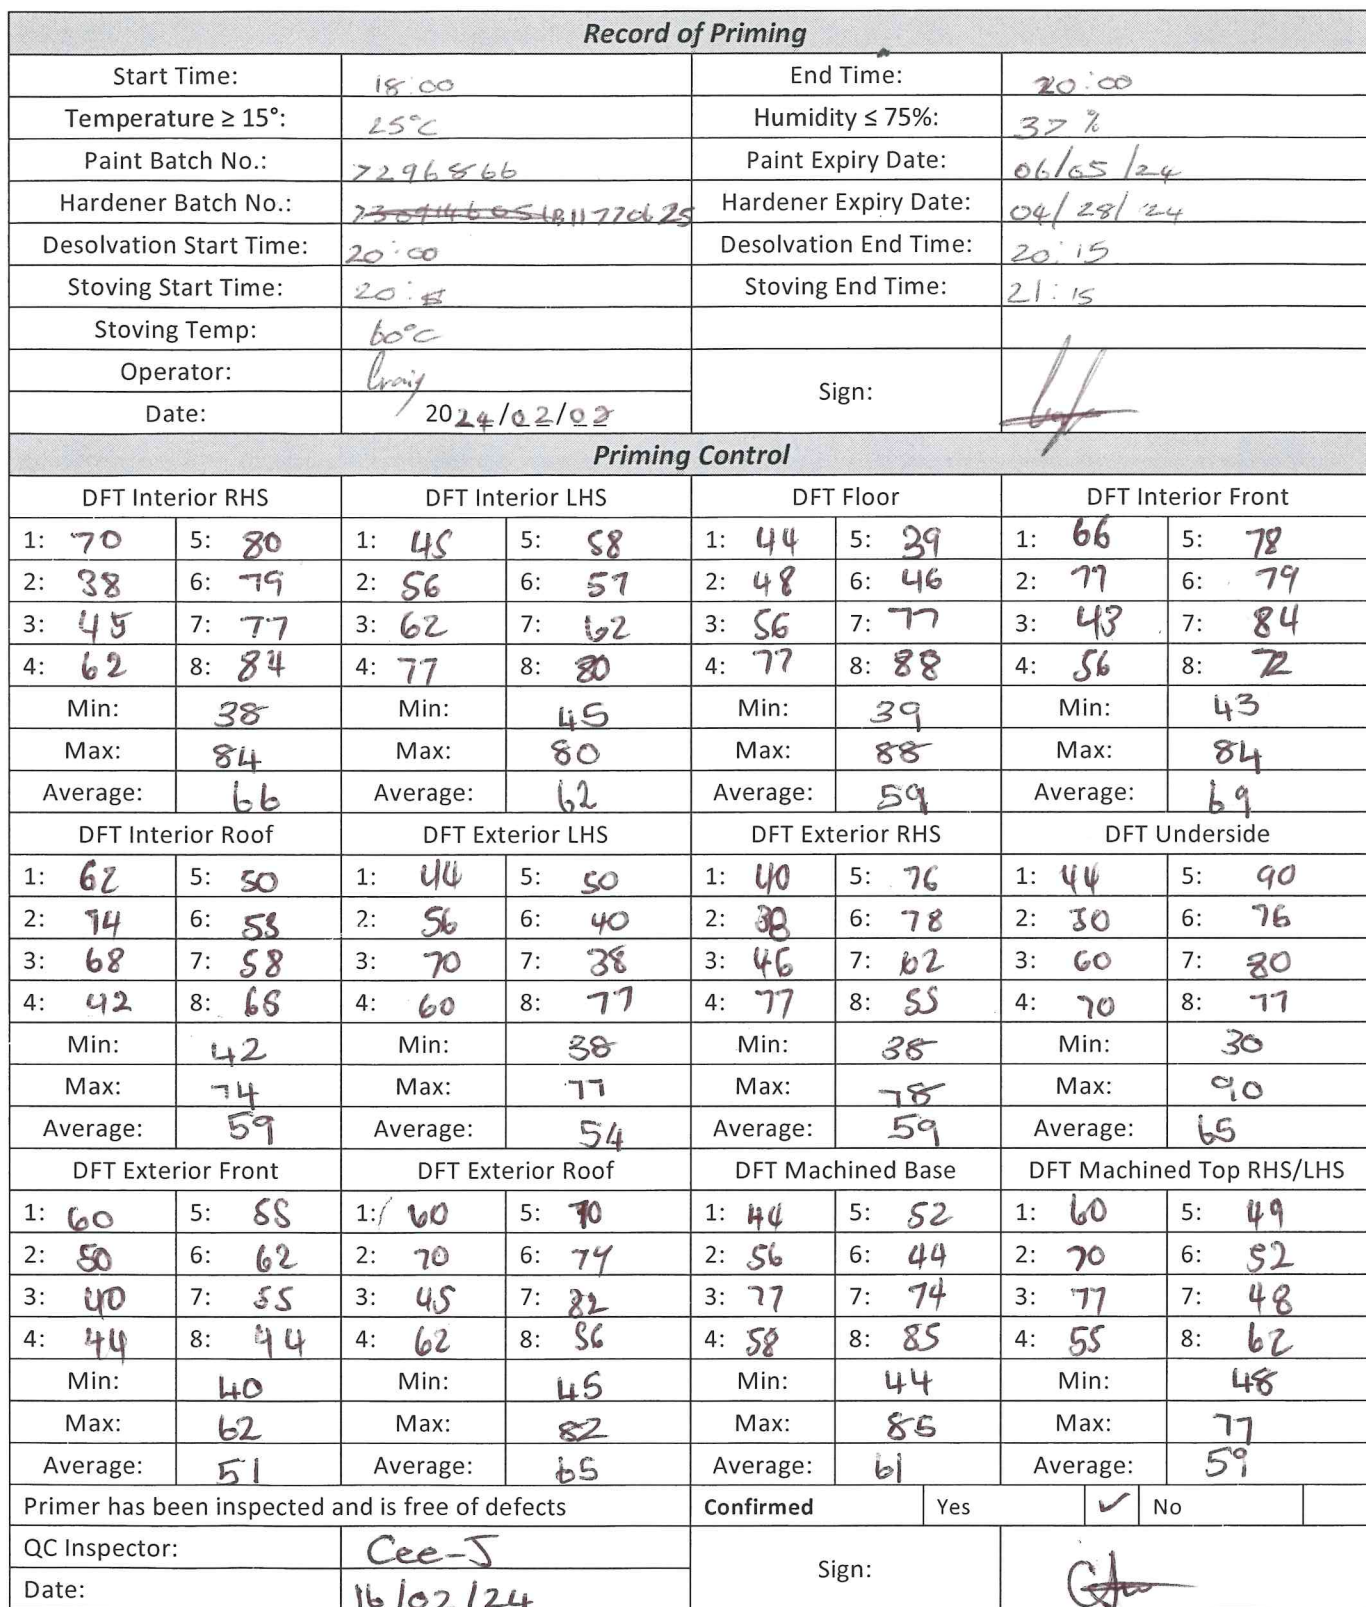 Record of Priming
Start Time: 18:00 End Time: 20:00
Temperature ≥ 15°: 25°C Humidity ≤ 75%: 37 %
Paint Batch No.: 7296866 Paint Expiry Date: 06/05/24
Hardener Batch No.: 1811770625 Hardener Expiry Date: 04/28/24
Desolvation Start Time: 20:00 Desolvation End Time: 20:15
Stoving Start Time: 20: Stoving End Time: 21:15
Stoving Temp: 60°C
Operator: Craig Sign:
Date: 2024/02/02
Priming Control
DFT Interior RHS DFT Interior LHS DFT Floor DFT Interior Front
1: 70 5: 80 1: 45 5: 58 1: 44 5: 39 1: 66 5: 78
2: 38 6: 79 2: 56 6: 57 2: 48 6: 46 2: 77 6: 79
3: 45 7: 77 3: 62 7: 62 3: 56 7: 77 3: 43 7: 84
4: 62 8: 84 4: 77 8: 80 4: 77 8: 88 4: 56 8: 72
Min: 38 Min: 45 Min: 39 Min: 43
Max: 84 Max: 80 Max: 88 Max: 84
Average: 66 Average: 62 Average: 59 Average: 69
DFT Interior Roof DFT Exterior LHS DFT Exterior RHS DFT Underside
1: 62 5: 50 1: 44 5: 50 1: 40 5: 76 1: 44 5: 90
2: 74 6: 55 2: 56 6: 40 2: 38 6: 78 2: 30 6: 76
3: 68 7: 58 3: 70 7: 38 3: 46 7: 62 3: 60 7: 80
4: 42 8: 68 4: 60 8: 77 4: 77 8: 55 4: 70 8: 77
Min: 42 Min: 38 Min: 38 Min: 30
Max: 74 Max: 77 Max: 78 Max: 90
Average: 59 Average: 54 Average: 59 Average: 65
DFT Exterior Front DFT Exterior Roof DFT Machined Base DFT Machined Top RHS/LHS
1: 60 5: 55 1: 60 5: 70 1: 44 5: 52 1: 60 5: 49
2: 50 6: 62 2: 70 6: 74 2: 56 6: 44 2: 70 6: 52
3: 40 7: 55 3: 45 7: 82 3: 77 7: 74 3: 77 7: 48
4: 44 8: 44 4: 62 8: 56 4: 58 8: 85 4: 55 8: 62
Min: 40 Min: 45 Min: 44 Min: 48
Max: 62 Max: 82 Max: 85 Max: 77
Average: 51 Average: 65 Average: 61 Average: 59
Primer has been inspected and is free of defects Confirmed Yes ✓ No
QC Inspector: Cee-J Sign:
Date: 16/02/24